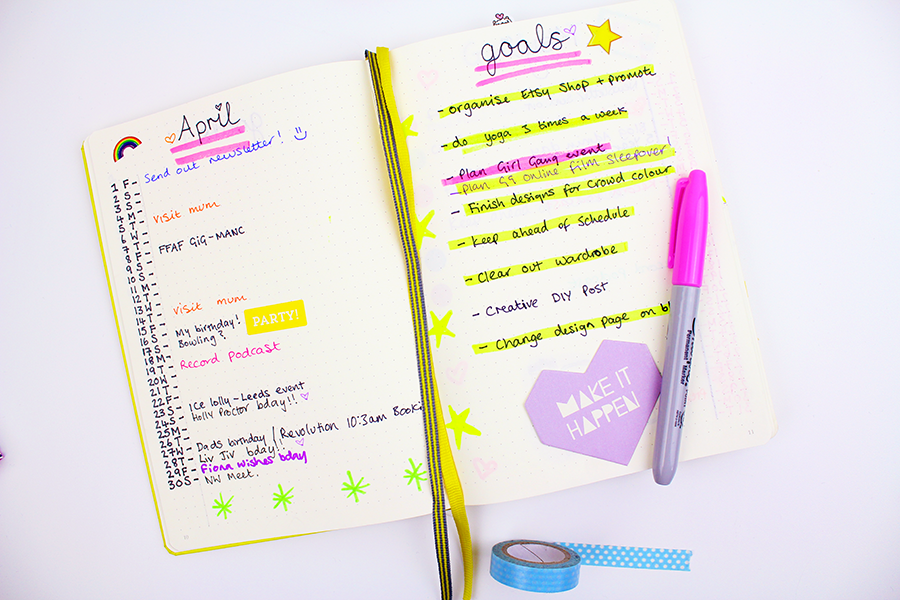 April
1 F-
2 S-
3 S-
4 M-
5 T-
6 W-
7 T-
8 F-
9 S-
10 S-
11 M-
12 T-
13 W-
14 T-
15 F-
16 S-
17 S-
18 M-
19 T-
20 W-
21 T-
22 F-
23 S-
24 S-
25 M-
26 T-
27 W-
28 T-
29 F-
30 S-
Send out newsletter!
visit mum
FFAF GIG-MANC
visit mum
My birthday!
PARTY!
Bowling?
Record Podcast
Ice lolly - Leeds event
Holly Proctor bday!!
Dads birthday / Revolution 10:3am Booki
Liv Jiv bday!!
Fiona wishes bday
NW Meet.
goals
- organise Etsy Shop + promote
- do yoga 3 times a week
- Plan Girl Gang event
- Plan GG online film Sleepover!
- Finish designs for Crowd colour
- Keep ahead of Schedule
- Clear out wardrobe
- Creative DIY Post
- Change design page on bl
MAKE IT
HAPPEN
Permanent Marker